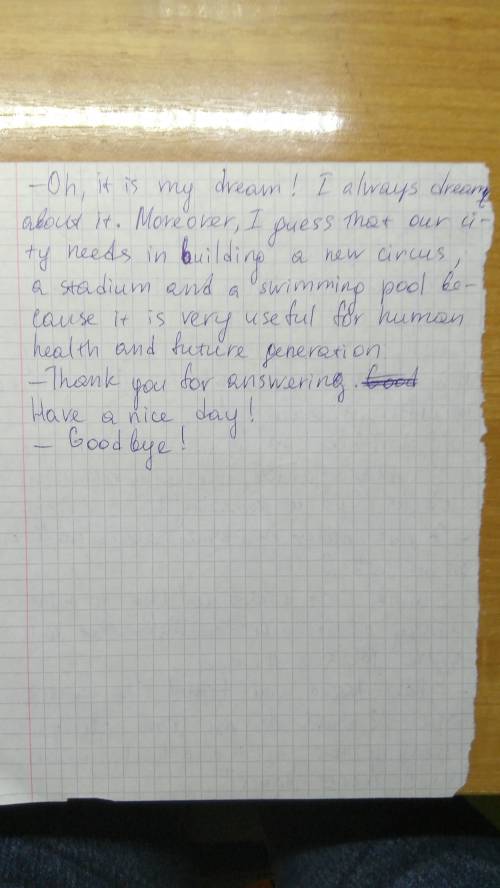 - Oh, it is my dream! I always dream
about it. Moreover, I guess that our ci-
ty needs in building a new circus,
a stadium and a swimming pool be-
cause it is very useful for human
health and future generation
- Thank you for answering. Good
Have a nice day!
- Goodbye!